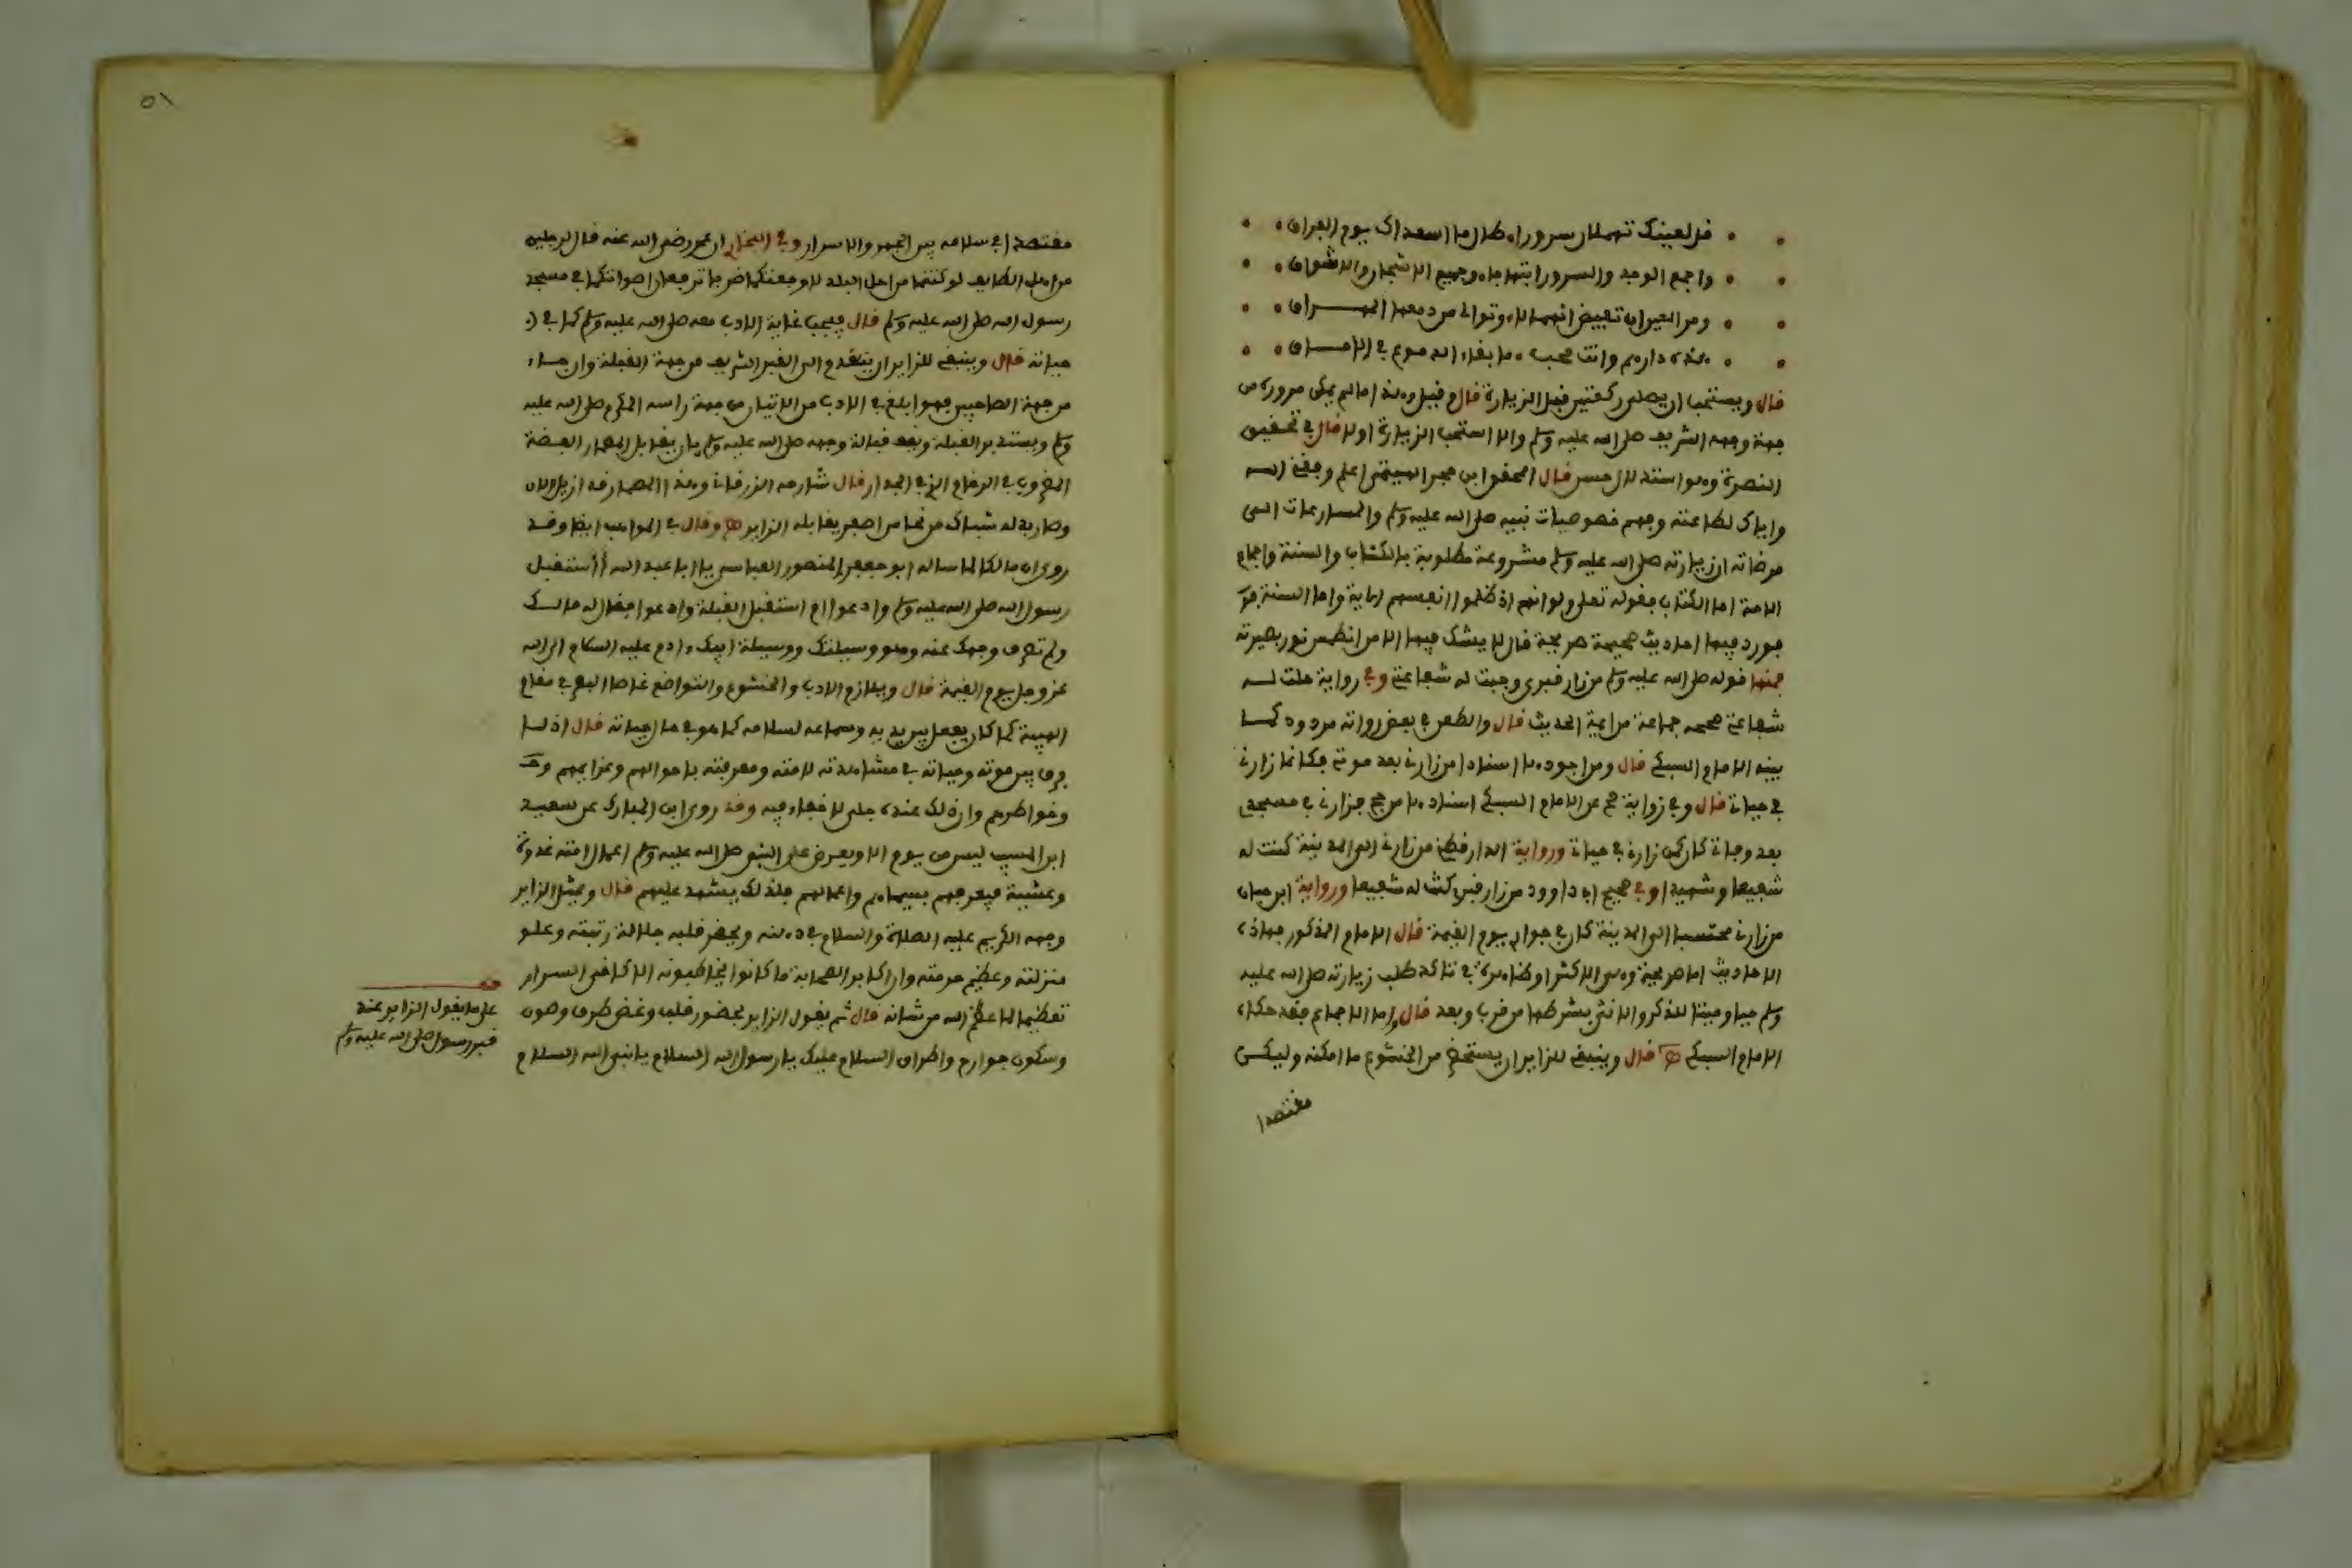 قل لعينك تهملان سرورا طال ما اسعداك يوم الفراق
واجمع الوجد والسرور ابتهاجا وجميع الاشجان والاشواق
ومر العين ان تفيض انهمالا وتوالى من دمعها المهراق
هذه دارهم وانت محب ما بقاء الدموع في الاماق
قال ويستحب ان يصلى ركعتين قبل الزيارة قال قيل وهذا ما لم يكن مروره من
جهة وجهه الشريف صلى الله عليه وسلم والا استحب الزيارة اولا قال في تحقيق
النصرة وهو استدلال حسن قال المحقق ابن حجر الهيتمى اعلم وفقنى الله
واياك لطاعته وفهم خصوصيات نبيه صلى الله عليه وسلم والمسارعات الى
مرضاته ان زيارته صلى الله عليه وسلم مشروعة مطلوبة بالكتاب والسنة واجماع
الامة اما الكتاب فقوله تعلى ولو انهم اذ ظلموا انفسهم الاية واما السنة
فورد فيها احاديث صحيحة صريحة قال لا يشك فيها الا من انطمس نور بصيرته
فمنها قوله صلى الله عليه وسلم من زار قبرى وجبت له شفاعتى وفي رواية حلت له
شفاعتى صححه جماعة من ايمة الحديث قال والطعن في بعض رواته مردود كما
بينه الامام السبكي قال ومن اجودها اسنادا من زارنى بعد موتى فكانما زارنى
في حياتى قال وفي رواية عن الامام السبكي اسنادها من حج فزارنى في مسجدى
بعد وفاتى كان كمن زارنى في حياتى ورواية الدارقطنى من زارنى الى المدينة كنت له
شفيعا وشهيدا وفي صحيح ابى داوود من زار قبرى كنت له شفيعا ورواية ابن حبان
من زارنى محتسبا الى المدينة كان في جوارى يوم القيمة قال الامام المذكور فهاذه
الاحاديث اما صريحة وهى الاكثر او ظاهرة في تاكد طلب زيارته صلى الله عليه
وسلم حيا وميتا للذكر والانثى بشرطها من قرب وبعد قال واما الاجماع فقد حكاه
الامام السبكي اهـ قال وينبغى للزاير ان يستحضر من الخشوع ما امكنه وليكن
مقتصدا
٥١
مقتصدا في سلامه بين الجهر والاسرار وفي البخارى ان عمر رضى الله عنه قال لرجلين
من اهل الطايف لو كنتما من اهل البلد لاوجعتكما ضربا ترفعان اصواتكما في مسجد
رسول الله صلى الله عليه وسلم قال فيجب غاية الادب معه صلى الله عليه وسلم كما في
حياته قال وينبغى للزاير ان يتقدم الى القبر الشريف من جهة القبلة وان جاء
من جهة الصاحبين فهو ابلغ في الادب من الاتيان من جهة راسه المكرم صلى الله عليه
وسلم ويستدبر القبلة ويقف قبالة وجهه صلى الله عليه وسلم بان يقابل المسمار الفضة
المضروب في الرخام الذى في الجدار قال شارحه الزرقانى وهذا المسمار قد ازيل الان
وصار بدله شباك من نحاس اصفر يقابله الزاير اهـ وقال في المواهب ايضا وقد
روى ان مالكا لما ساله ابو جعفر المنصور العباسى يا ابا عبد الله أاستقبل
رسول الله صلى الله عليه وسلم وادعوا ام استقبل القبلة وادعوا فقال له مالك
ولم تصرف وجهك عنه وهو وسيلتك ووسيلة ابيك ءادم عليه السلام الى الله
عز وجل يوم القيمة قال ويلازم الادب والخشوع والتواضع غاض البصر في مقام
الهيبة كما كان يفعل بين يديه وسماعه لسلامه كما هو في حال حياته قال اذ لا
فرق بين موته وحياته في مشاهدته لامته ومعرفته باحوالهم وعزايمهم
وخواطرهم وان ذلك عنده جلى لا خفاء فيه وقد روى ابن المبارك عن سعيد
ابن المسيب ليس من يوم الا ويعرض على النبى صلى الله عليه وسلم اعمال امته غدوة
وعشية فيعرفهم بسيماهم واعمالهم فلذلك يشهد عليهم قال ويمثل الزاير
وجهه الكريم عليه الصلاة والسلام في ذهنه ويحضر قلبه جلالة رتبته وعلو
منزلته وعظيم حرمته وان اكابر الصحابة ما كانوا يخاطبونه الا كاخى السرار
تعظيما لما عظم الله من شانه قال ثم يقول الزاير بحضور قلب وغض طرف وصوت
وسكون جوارح واطراق السلام عليك يا رسول الله السلام يا نبى الله السلام
على ما يقول الزاير عند
قبر رسول صلى الله عليه وسلم